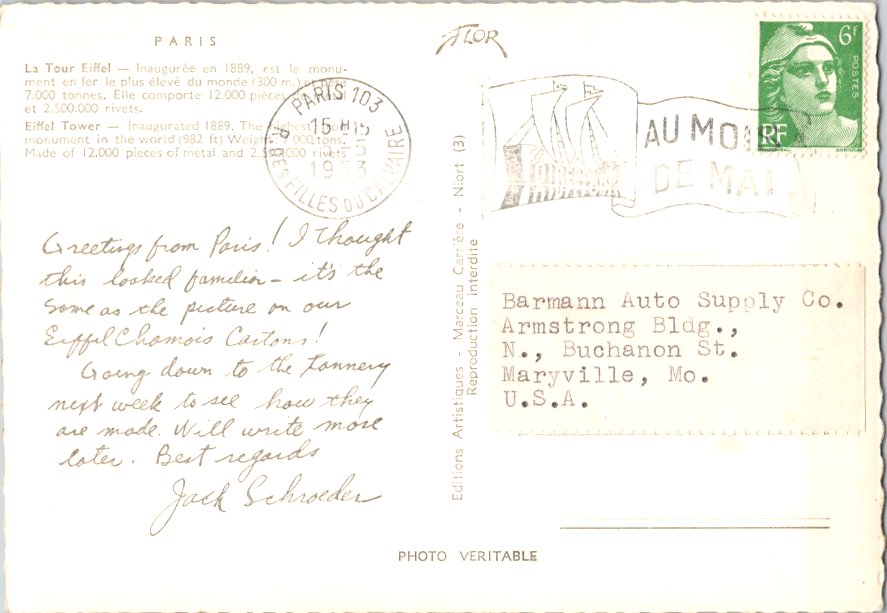 PARIS
La Tour Eiffel — Inaugurée en 1889, est le monu-
ment en fer le plus élevé du monde (300 m.) et pèse
7.000 tonnes. Elle comporte 12.000 pièces
et 2.500.000 rivets.
Eiffel Tower — Inaugurated 1889. The
monument in the world (982 ft) Weight 7.000 tons.
Made of 12.000 pieces of metal and 2.500.000 rivets
FLOR
PARIS 103
15 H15
1953
R. DES FILLES DU CALVAIRE
AU MOIS
DE MAI
6F
POSTES
RF
Greetings from Paris! I thought
this looked familiar – it's the
same as the picture on our
Eiffel Chamois Cartons!
Going down to the tannery
next week to see how they
are made. Will write more
later. Best regards
Jack Schroeder
Editions Artistiques - Marceau Carrière - Niort (3)
Reproduction interdite
Barmann Auto Supply Co.
Armstrong Bldg.,
N., Buchanon St.
Maryville, Mo.
U.S.A.
PHOTO VERITABLE